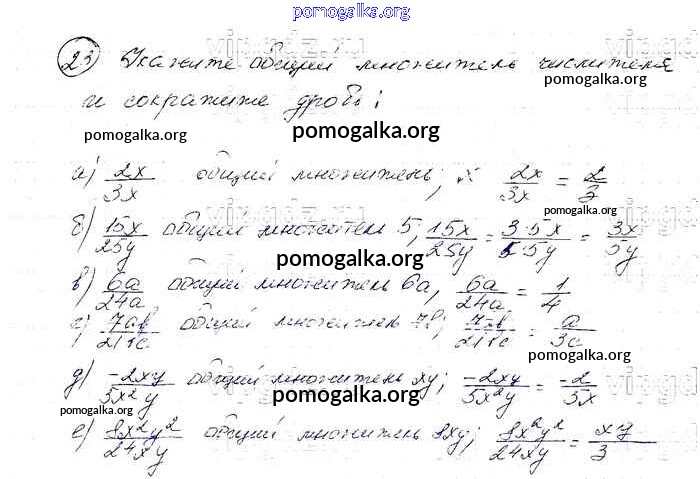 pomogalka.org
23 Укажите общий множитель числителя
pomogalka.org
и сократите дробь:
pomogalka.org
а) 2x/3x общий множитель; x 2x/3x = 2/3
pomogalka.org
б) 15x/25y общий множител 5; 15x/25y = 3·5x/5·5y = 3x/5y
pomogalka.org
в) 6a/24a общий множитель 6a, 6a/24a = 1/4
pomogalka.org
г) 7ab/21bc общий множитель 7b; 7ab/21bc = a/3c
pomogalka.org
д) -2xy/5x²y общий множитель xy; -2xy/5x²y = -2/5x
pomogalka.org
pomogalka.org
е) 8x²y²/24xy общий множитель 8xy; 8x²y²/24xy = xy/3
pomogalka.org